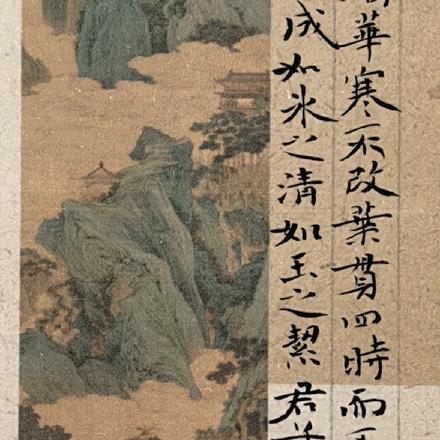 華寒不改葉貫四時而
成如氷之清如玉之絜君